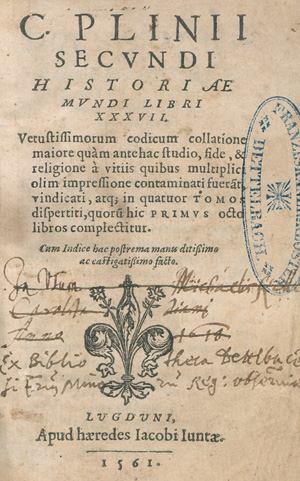 C. PLINII
SECVNDI
HISTORIÆ
MVNDI LIBRI
XXXVII.
Vetustissimorum codicum collatione
maiore quàm antehac studio, fide, &
religione à vitiis quibus multiplici
olim impressione contaminati fuerãt
vindicati, atq; in quatuor TOMOS
dispertiti, quorũ hic PRIMVS octo
libros complectitur.
Cum Indice hac postrema manu ditissimo
ac castigatissimo facto.
BETTELBACH
Ex Biblio theca
LVGDVNI,
Apud hæredes Iacobi Iuntæ.
1561.